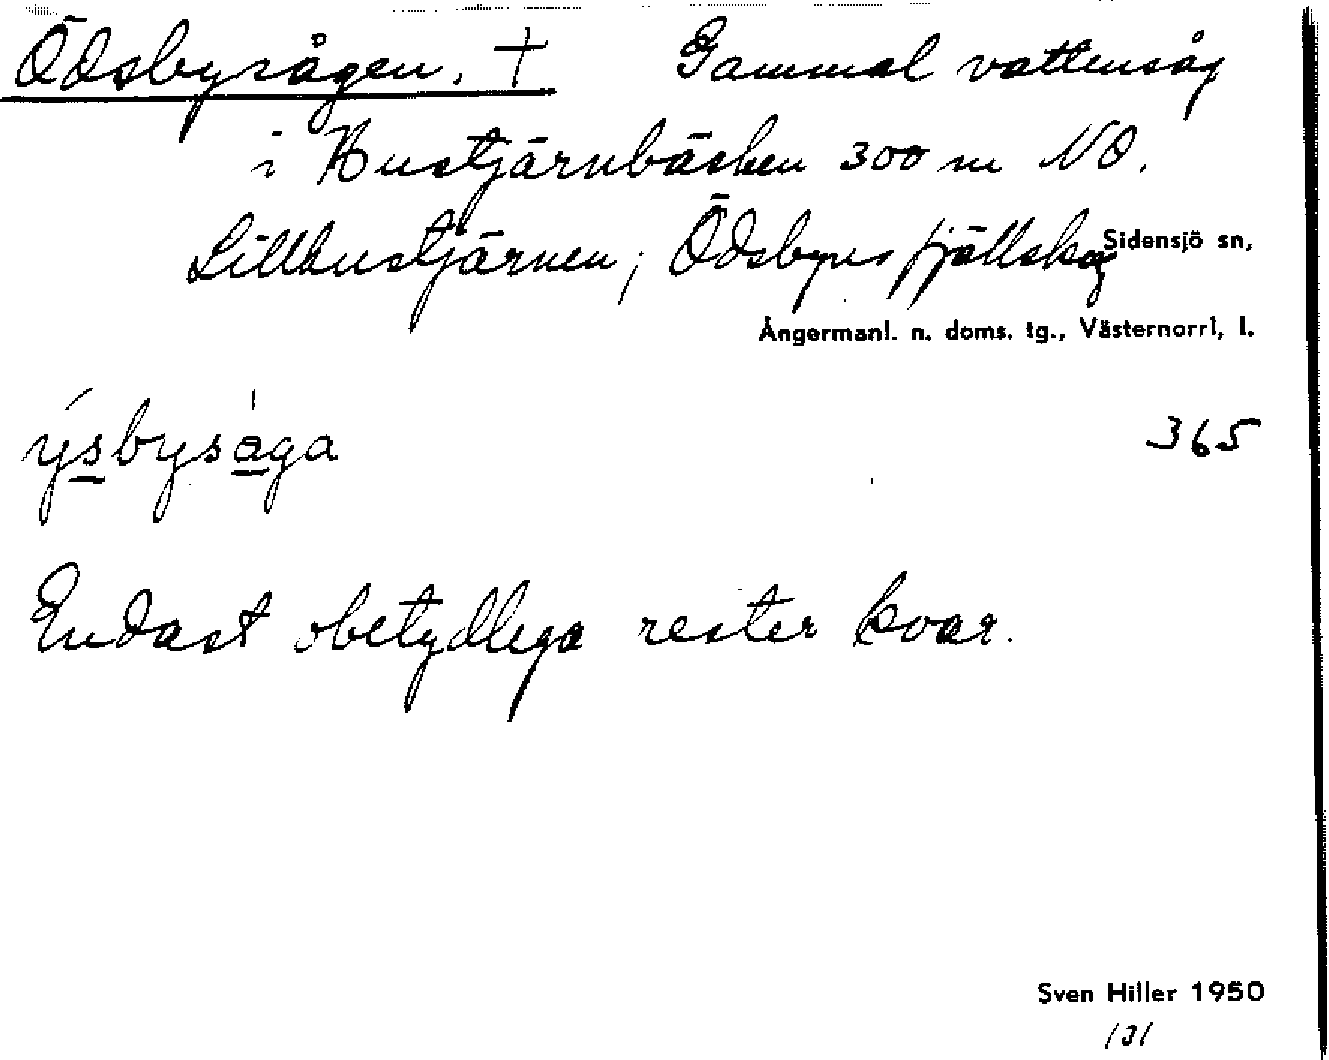 Ödsbysågen. † Gammal vattensåg
i Hustjärnbäcken 300 m NO.
Lillhustjärnen; Ödsbyns fjällskog
Sidensjö sn,
Ångermanl. n. doms. tg., Västernorrl, l.
ýsbysàga 365
Endast obetydliga rester kvar.
Sven Hiller 1950
131